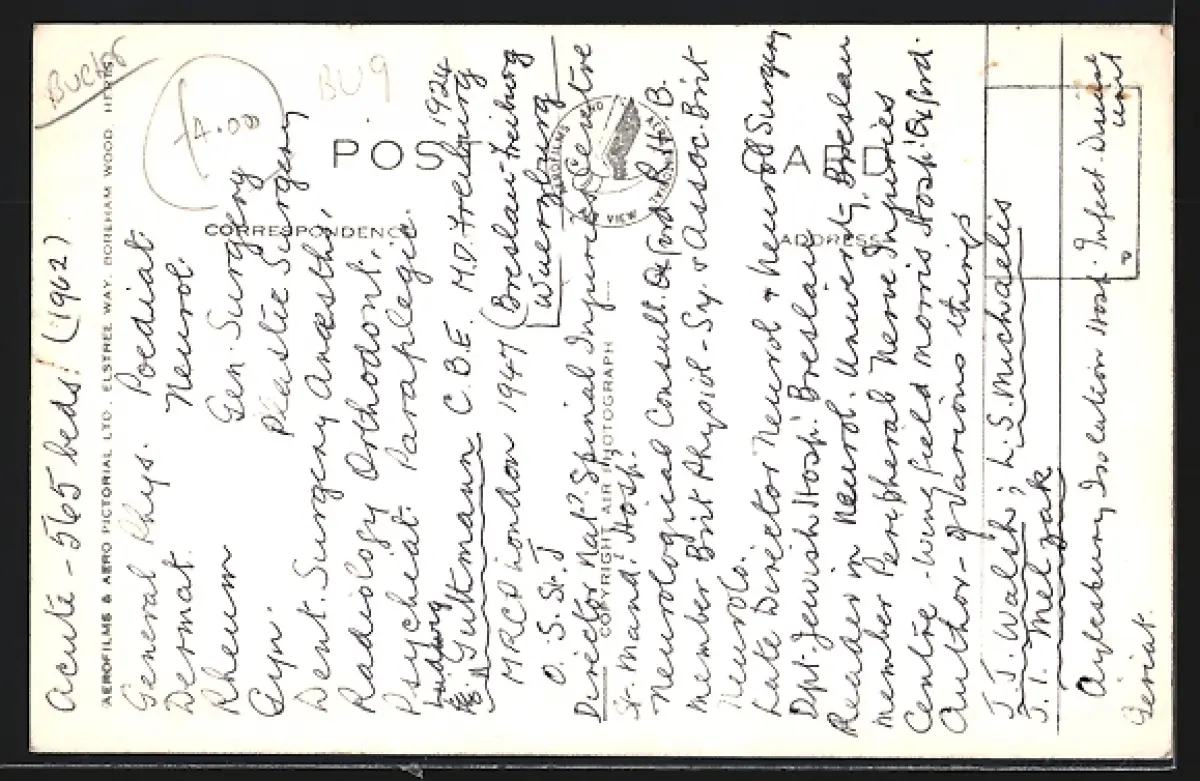 Acute - 565 beds! (1962)
General Phys. Poediat.
Dermat. Neurol.
Rheum Gen. Surgery
Gyn. Plastic Surgery
Dent. Surgery Anaesth.
Radiology Orthodont.
Psychiat. Paraplegic.
Ludwig
Guttmann C.B.E. M.D. Freiburg 1924
MRCP London 1947 (Breslau-Freiburg
O.St.J Wuerzburg
Director Nat. Spinal Injuries Centre
St. Mand. Hosp.
Neurological Consult. Oxford R.H.B.
Member Brit Physiol-Sy. & Assoc. Brit
Neurol.
Late Director Neurol & Neuro Surgery
Dpt. Jewish Hosp. Breslau
Reader in Neurol. University Breslau
Member Peripheral Nerve Injuries
Centre - Wingfield Morris Hosp. Oxford.
Author - of various things
J.J. Walsh; L.S. Michaelis
J. I. Melzak
Aylesbury Isolation Hosp. Infect. Disease unit
Geriat.
BU9
£4.00
POST CARD
CORRESPONDENCE
ADDRESS
AEROFILMS & AERO PICTORIAL LTD. ELSTREE WAY, BOREHAM WOOD, HERTS
COPYRIGHT AIR PHOTOGRAPH
AEROFILMS
AIR VIEW